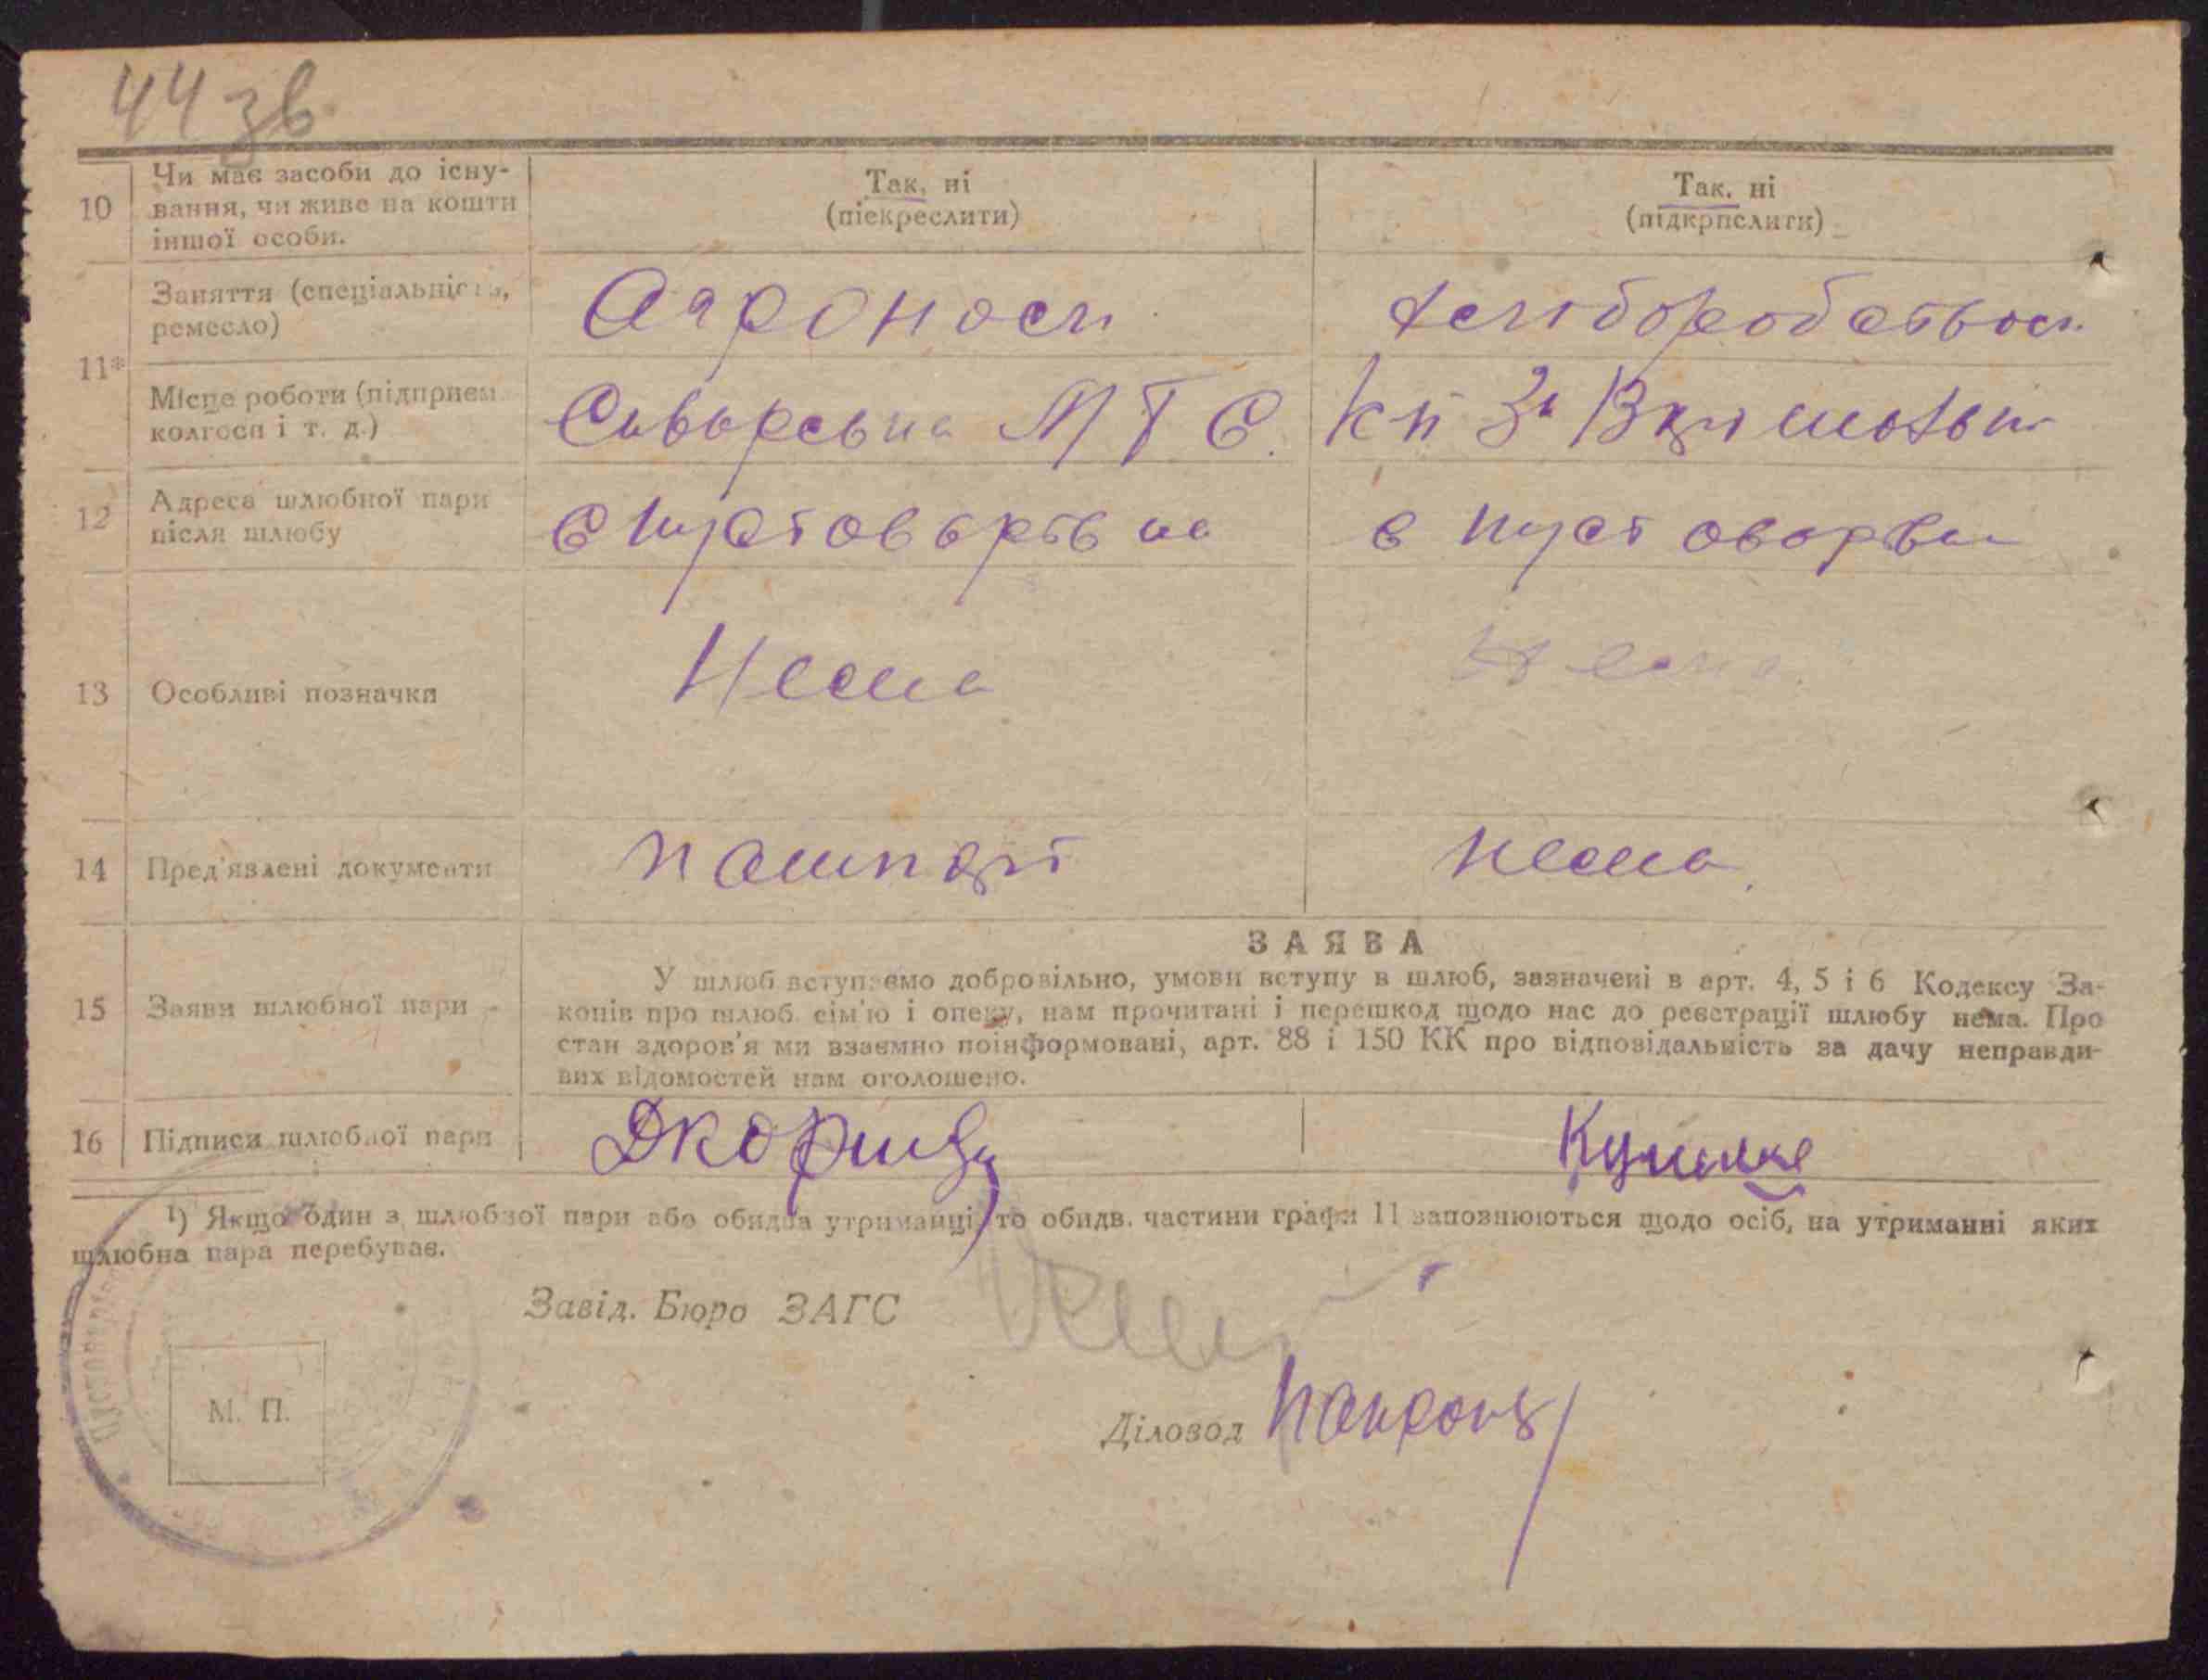 44 зв
10 Чи має засоби до існу-
вання, чи живе на кошти
іншої особи.
Так, ні
(піекреслити)
Так. ні
(підкрпслити)
11* Заняття (спеціальність,
ремесло)
Агроном
хліборобством
Місце роботи (підприєм.
колгосп і т. д.)
Сиворська М Т С.
Кп
12 Адреса шлюбної пари
після шлюбу
с Пустоварівка
с Пустоварівка
13 Особливі позначки
Нема
Нема.
14 Пред'явлені документи
Пашпорт
нема.
ЗАЯВА
15 Заяви шлюбної пари
У шлюб вступаємо добровільно, умови вступу в шлюб, зазначені в арт. 4, 5 і 6 Кодексу За-
конів про шлюб сім'ю і опеку, нам прочитані і перешкод щодо нас до реєстрації шлюбу нема. Про
стан здоров'я ми взаємно поінформовані, арт. 88 і 150 КК про відповідальність за дачу неправди-
вих відомостей нам оголошено.
16 Підписи шлюбної пари
¹) Якщо один з шлюбної пари або обидва утриманці, то обидв. частини графи 11 заповнюються щодо осіб, на утриманні яких
шлюбна пара перебуває.
Завід. Бюро ЗАГС
М. П.
Діловод